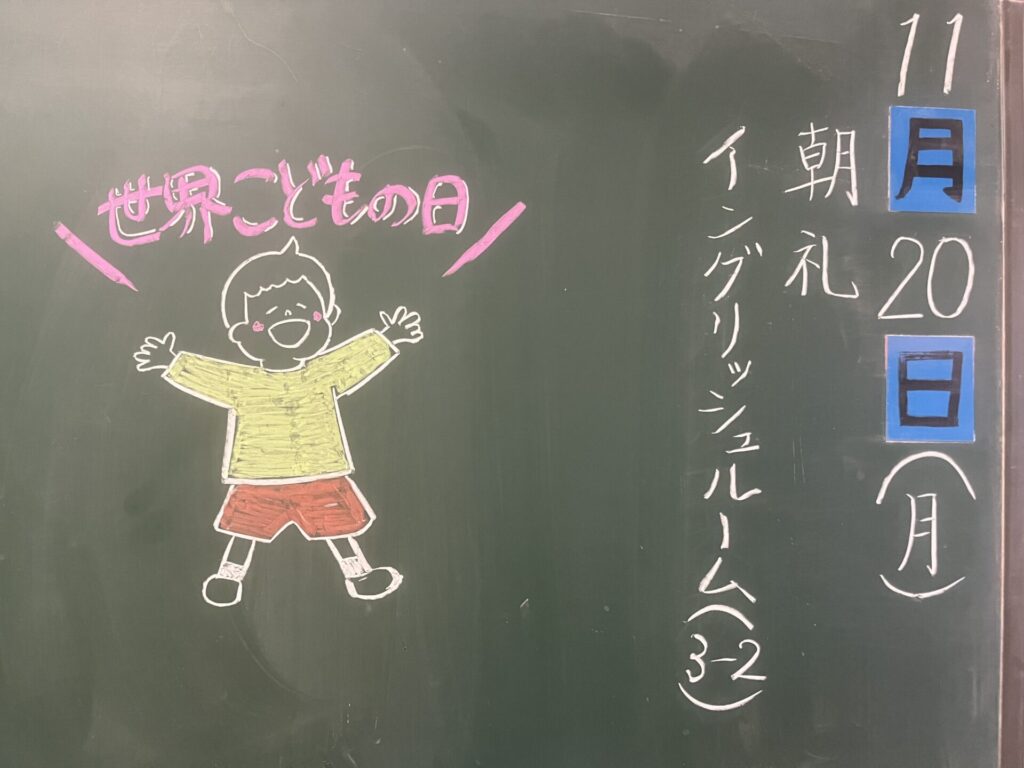 11月20日(月)
朝礼
イングリッシュルーム(3-2)
世界こどもの日